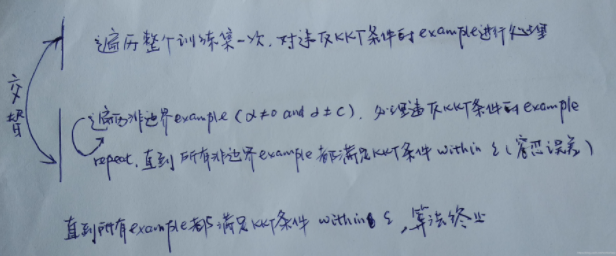 遍历整个训练集一次,对违反KKT条件的example进行处理
交替
遍历非边界example(α≠0 and α≠C),处理违反KKT条件的example
repeat,直到所有非边界example都满足KKT条件 within ε(容忍误差)
直到所有example都满足KKT条件 within ε,算法终止